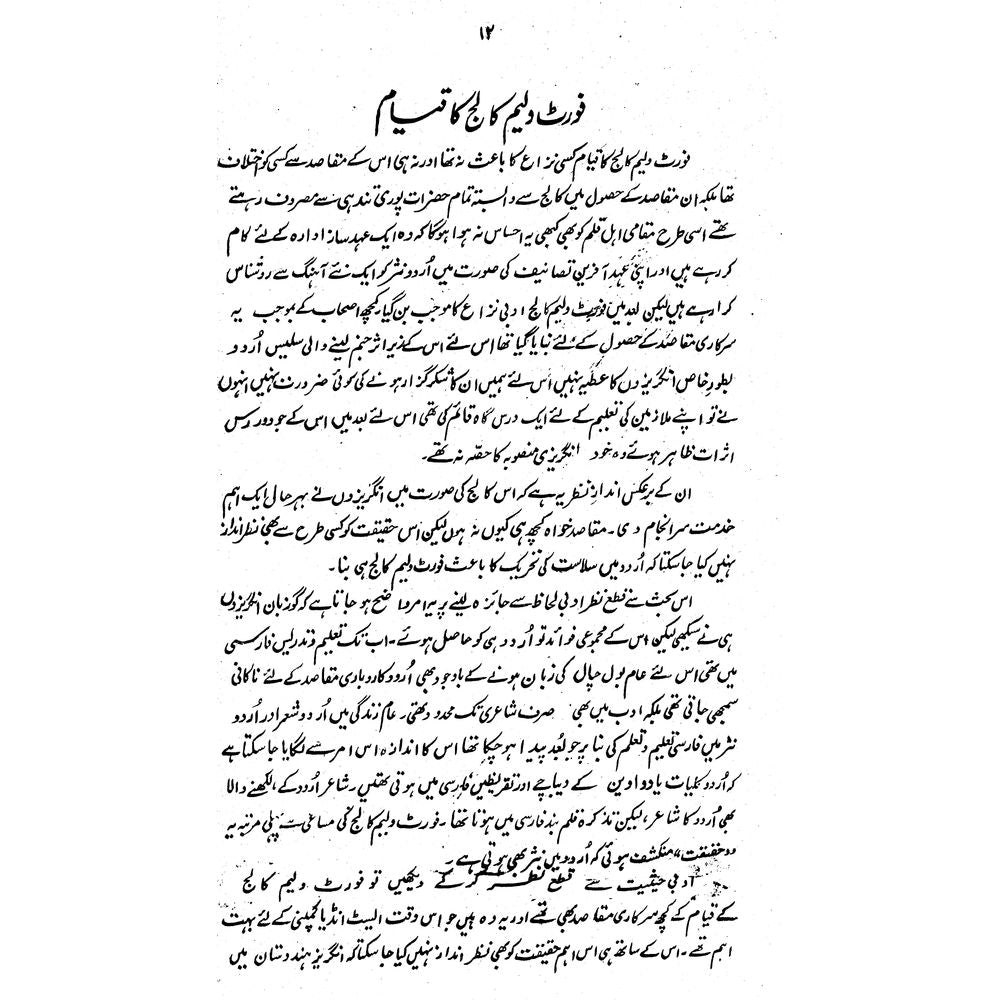 ۱۲
فورٹ ولیم کالج کا قیام
فورٹ ولیم کالج کا قیام کسی نزاع کا باعث نہ تھا اور نہ ہی اس کے مقاصد سے کسی کو اختلاف
تھا بلکہ ان مقاصد کے حصول میں کالج سے وابستہ تمام حضرات پوری تندہی سے مصروف رہتے
تھے اسی طرح مقامی اہل قلم کو بھی کبھی یہ احساس نہ ہوا ہوگا کہ وہ ایک عہد ساز ادارہ کے لئے کام
کر رہے ہیں اور اپنی عہد آفریں تصانیف کی صورت میں اُردو نثر کو ایک نئے آہنگ سے روشناس
کرا رہے ہیں لیکن بعد میں فورٹ ولیم کالج ادبی نزاع کا موجب بن گیا۔ کچھ اصحاب کے بموجب یہ
سرکاری مقاصد کے حصول کے لئے بنایا گیا تھا اس لئے اس کے زیر اثر جنم لینے والی سلیس اُردو
بطورِ خاص انگریزوں کا عطیہ نہیں اس لئے ہمیں ان کا شکر گزار ہونے کی کوئی ضرورت نہیں انہوں
نے تو اپنے ملازمین کی تعلیم کے لئے ایک درس گاہ قائم کی تھی اس لئے بعد میں اس کے جو دوررس
اثرات ظاہر ہوئے وہ خود انگریزی منصوبہ کا حصّہ نہ تھے۔
ان کے برعکس اندازِ نظر یہ ہے کہ اس کالج کی صورت میں انگریزوں نے بہرحال ایک اہم
خدمت سرانجام دی۔ مقاصد خواہ کچھ ہی کیوں نہ ہوں لیکن اس حقیقت کو کسی طرح سے بھی نظر انداز
نہیں کیا جاسکتا کہ اُردو میں سلاست کی تحریک کا باعث فورٹ ولیم کالج ہی بنا۔
اس بحث سے قطع نظر ادبی لحاظ سے جائزہ لینے پر یہ امر واضح ہو جاتا ہے کہ گو زبان انگریزوں
ہی نے سیکھی لیکن اس کے مجموعی فوائد تو اُردو ہی کو حاصل ہوئے۔ اب تک تعلیم و تدریس فارسی
میں تھی اس لئے عام بول چال کی زبان ہونے کے باوجود بھی اُردو کاروباری مقاصد کے لئے ناکافی
سمجھی جاتی تھی بلکہ ادب میں بھی صرف شاعری تک محدود تھی۔ عام زندگی میں اُردو شعر اور اُردو
نثر میں فارسی تعلیم و تعلم کی بنا پر جو بُعد پیدا ہو چکا تھا اس کا اندازہ اس امر سے لگایا جا سکتا ہے
کہ اُردو کلیات یا دواوین کے دیباچے اور تقریظیں فارسی میں ہوتی تھیں۔ شاعر اُردو کے، لکھنے والا
بھی اُردو کا شاعر، لیکن تذکرہ قلم بند فارسی میں ہوتا تھا۔ فورٹ ولیم کالج کی مساعی سے پہلی مرتبہ یہ
"حقیقت" منکشف ہوئی کہ اُردو میں نثر بھی ہوتی ہے۔
ادبی حیثیت سے قطع نظر کر کے دیکھیں تو فورٹ ولیم کالج
کے قیام کے کچھ سرکاری مقاصد بھی تھے اور یہ وہ ہیں جو اس وقت ایسٹ انڈیا کمپنی کے لئے بہت
اہم تھے۔ اس کے ساتھ ہی اس اہم حقیقت کو بھی نظر انداز نہیں کیا جا سکتا کہ انگریز ہندوستان میں